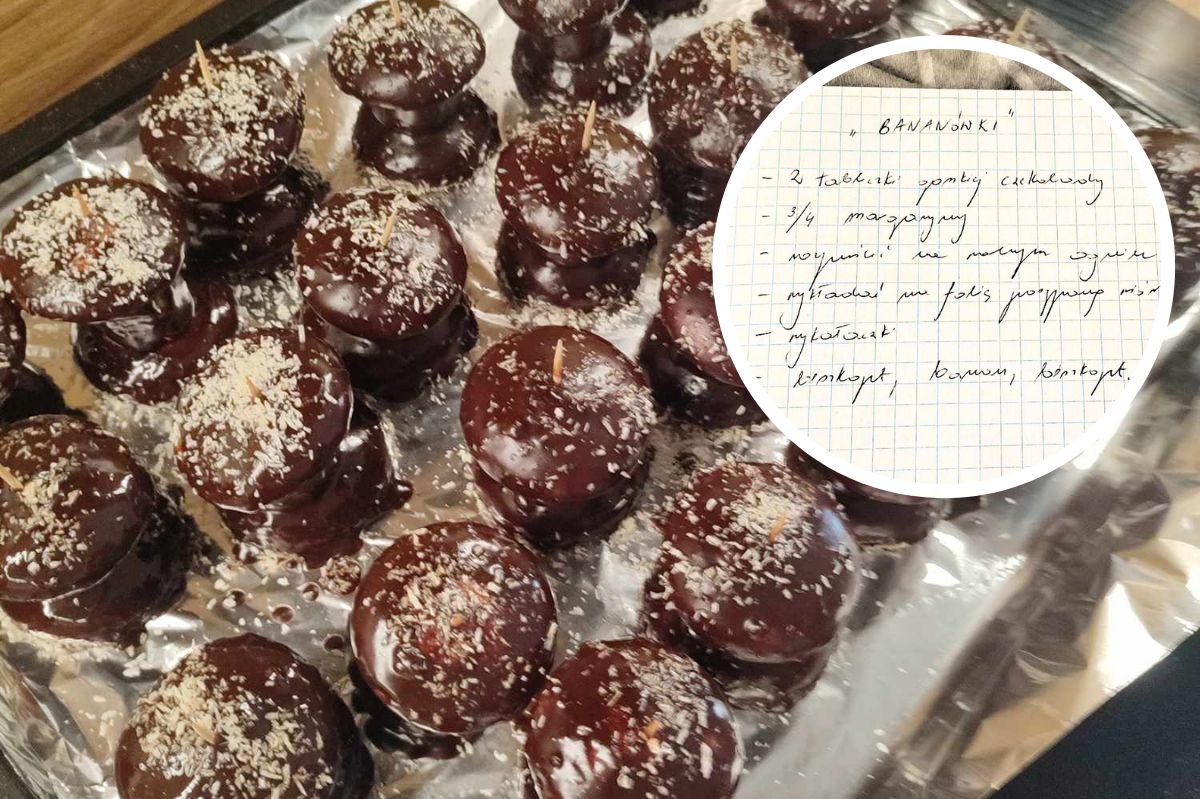 „BANANÓWKI"
- 2 tabliczki gorzkiej czekolady
- 3/4 margaryny
- rozpuścić na wolnym ogniu
- wykładać na folię posypaną
- wykałaczki
- biszkopt, banan, biszkopt.